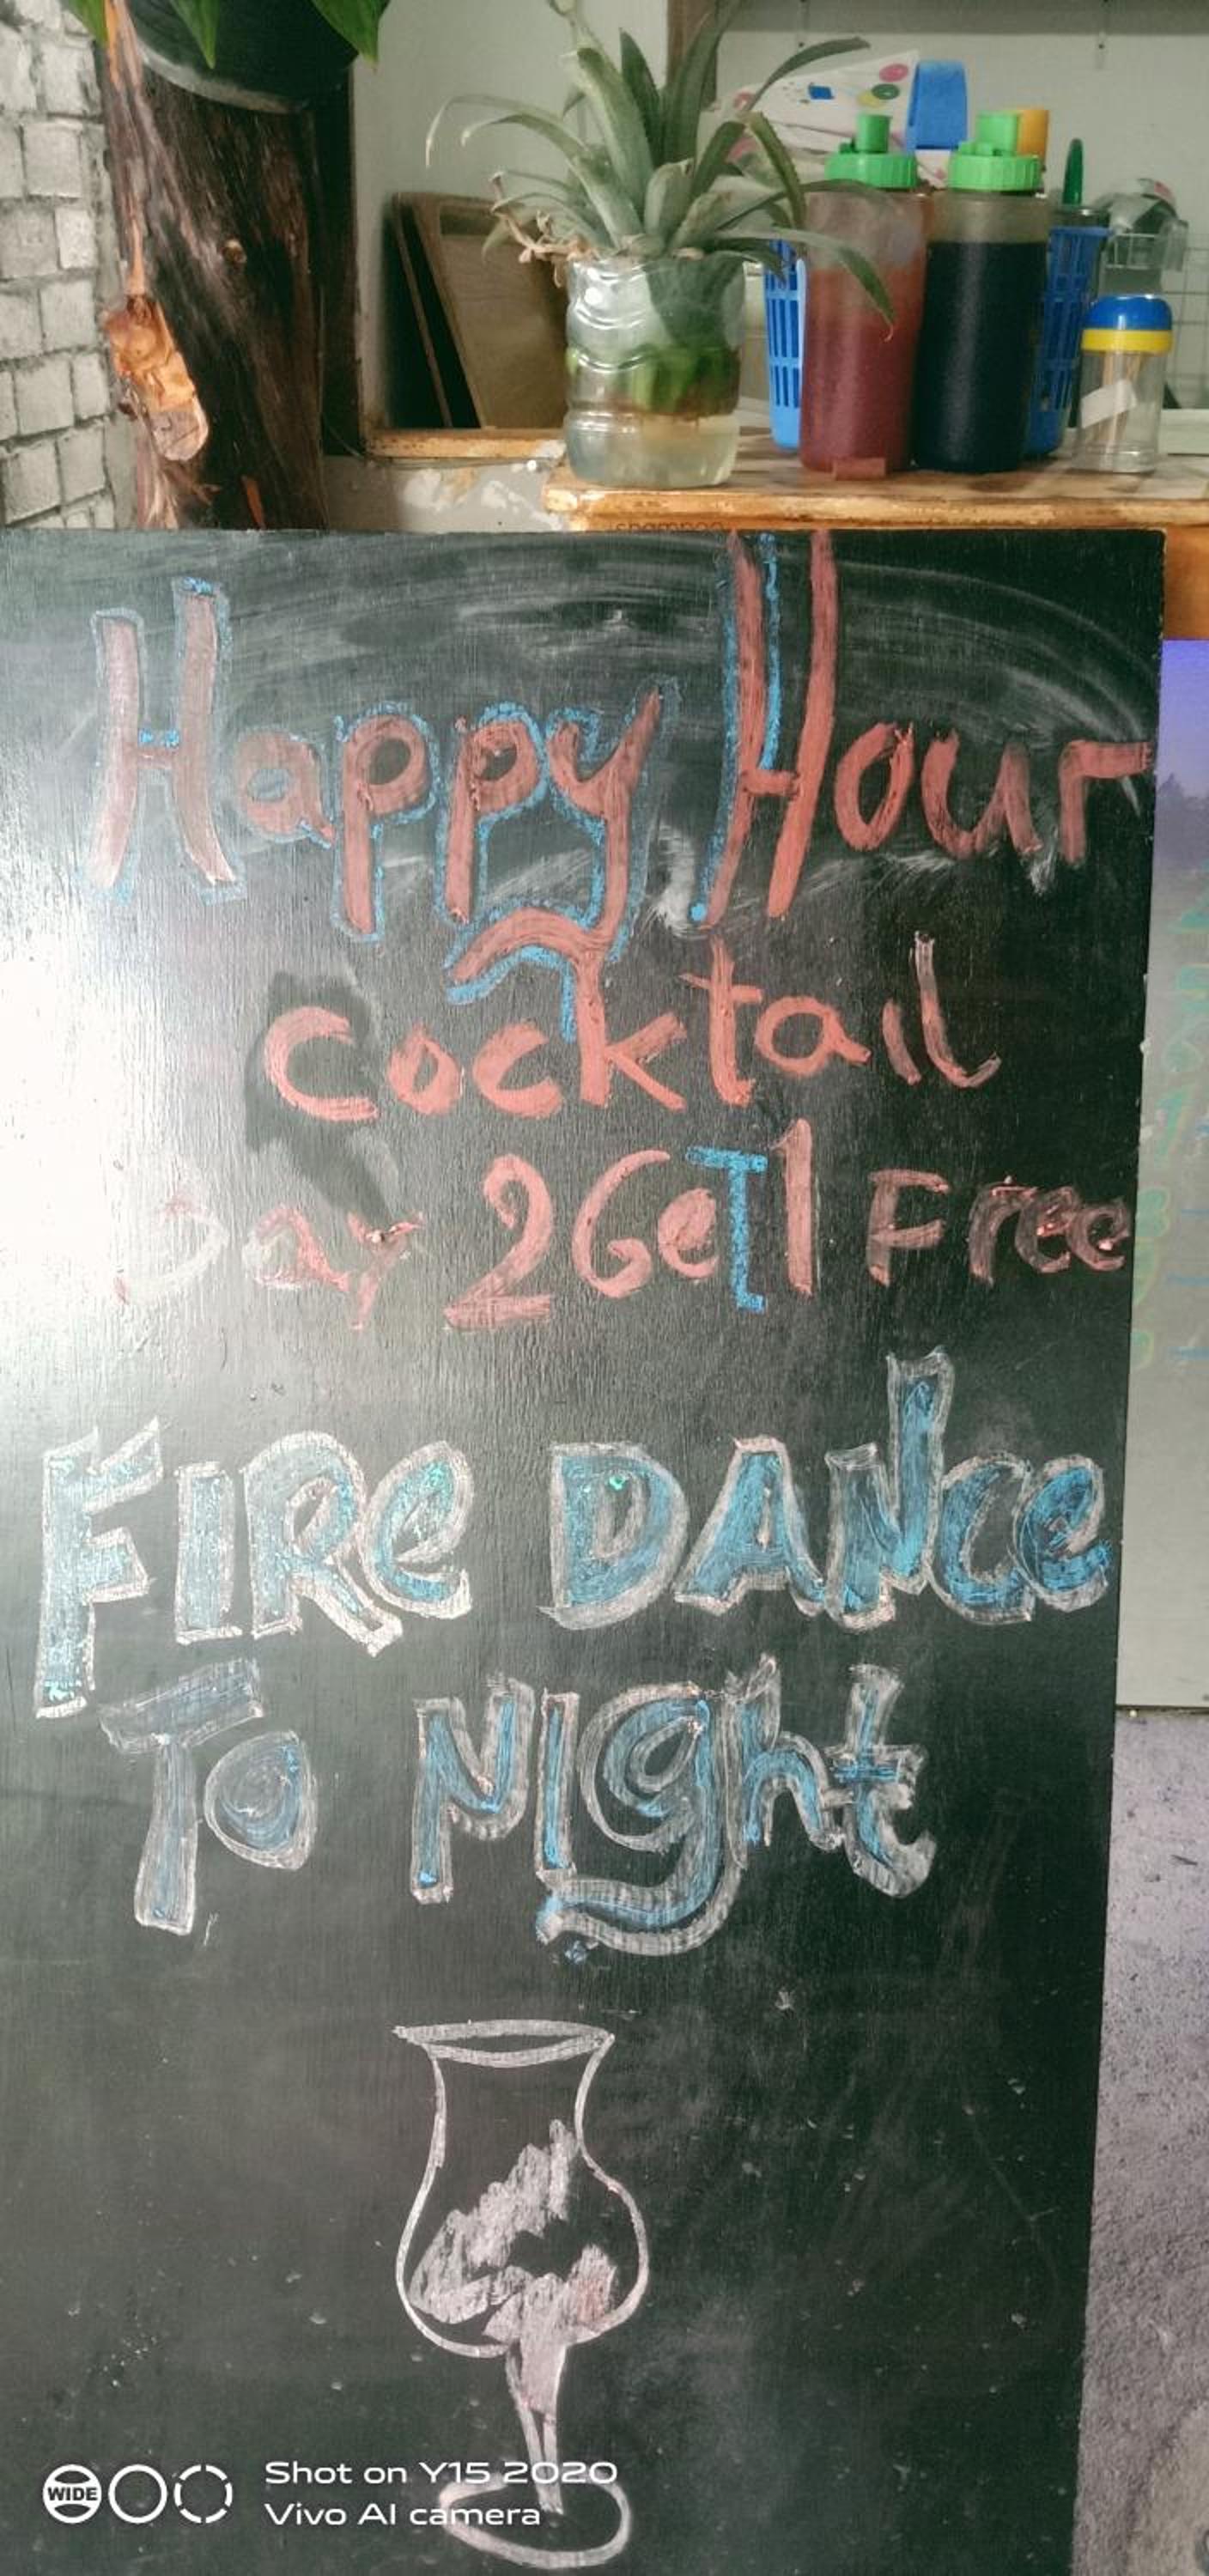 shampoo
Happy Hour
Cocktail
Day 2 GeT 1 Free
FIRe DANce
To NIght
WIDE
Shot on Y15 2020
Vivo AI camera